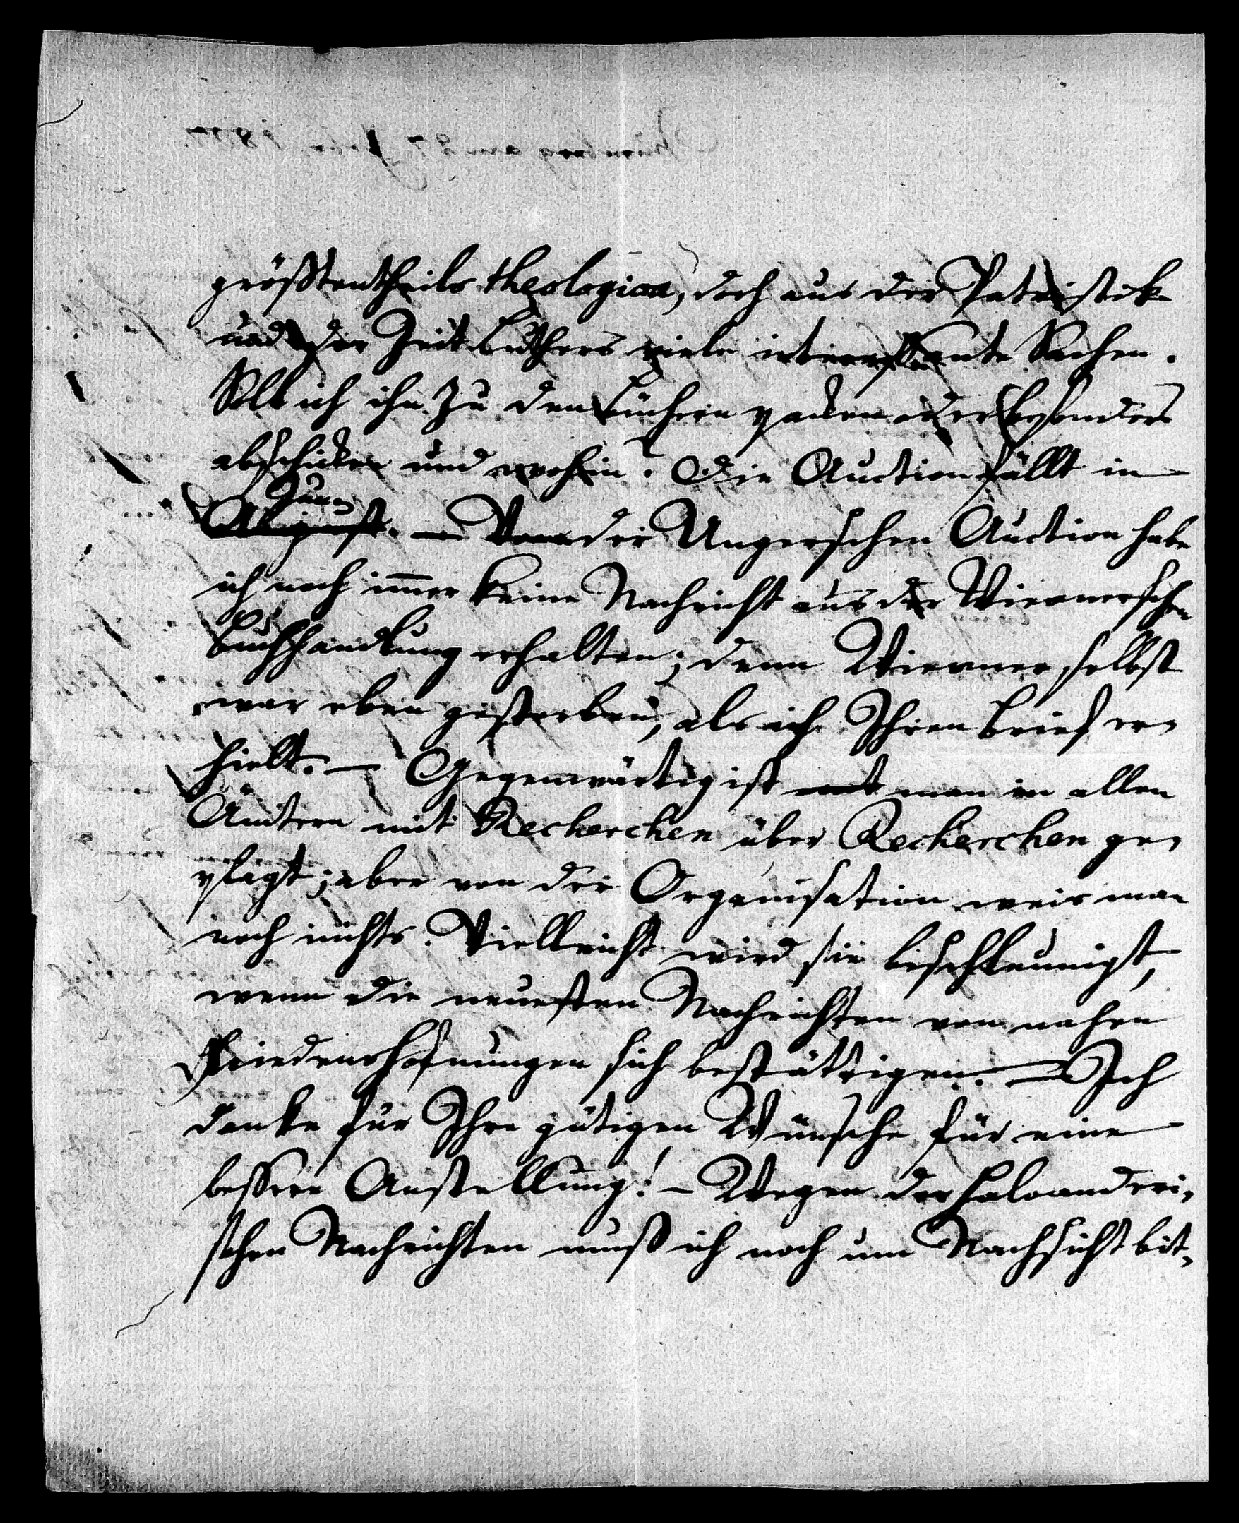 größtentheils theologica, doch aus der Patristik
und der Zeit Luthers viele interessante Sachen.
Soll ich ihn zu den Büchern packen oder besonders
abschicken und wohin? Die Auction fällt in
Jun.
August. – Von der Ungerschen Auction habe
ich noch immer keine Nachricht aus der Wiesnerschen
Buchhandlung erhalten; denn Wiesner selbst
war eben gestorben, als ich Ihren Brief er-
hielt. – Gegenwärtig ist man in allen
Ämtern mit Recherchen über Recherchen ge-
plagt; aber von der Organisation weis man
noch nichts. Vielleicht wird sie beschleunigt,
wenn die neuesten Nachrichten von nahen
Friedenshofnungen sich bestättigen. – Ich
danke für Ihre gütigen Wünsche für eine
bessere Anstellung! – Wegen der Haloanderi-
schen Nachrichten muß ich noch um Nachsicht bit-